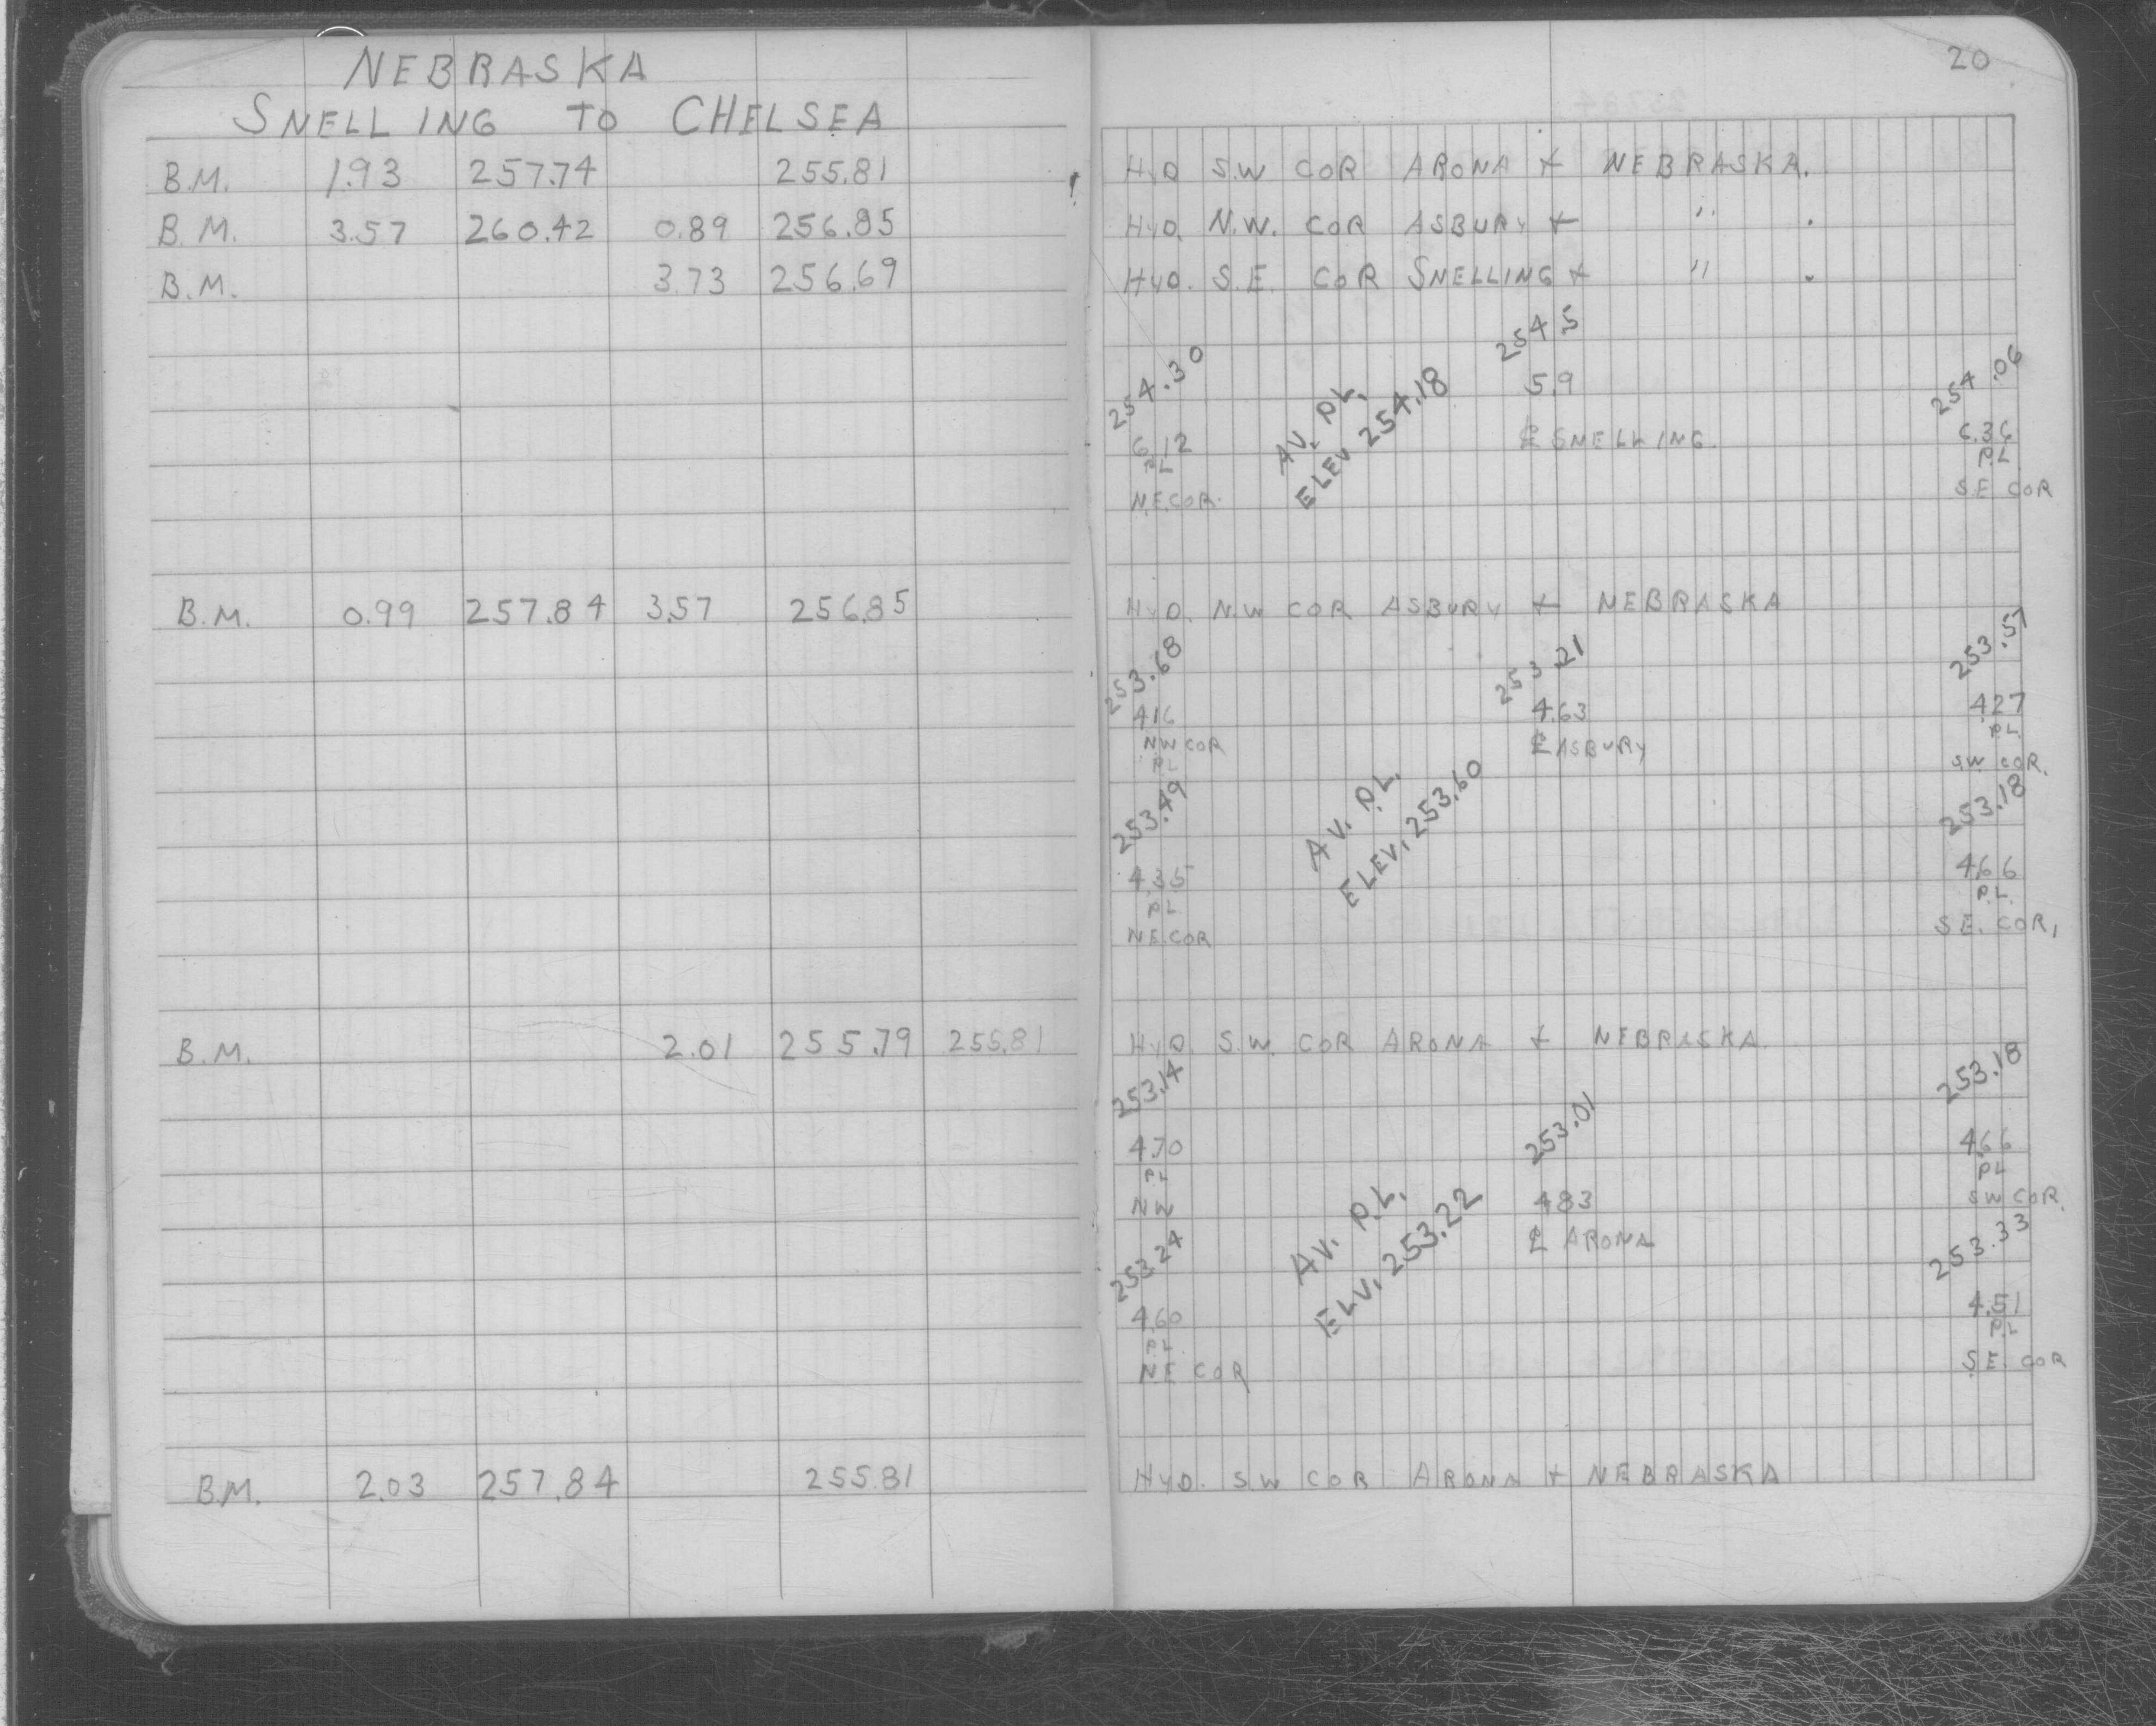 NEBRASKA
SNELLING TO CHELSEA
B.M. 1.93 257.74 255.81
B.M. 3.57 260.42 0.89 256.85
B.M. 3.73 256.69
B.M. 0.99 257.84 3.57 256.85
B.M. 2.01 255.79 255.81
B.M. 2.03 257.84 255.81
20
HYD S.W COR ARONA + NEBRASKA.
HYD. N.W. COR ASBURY + " .
HYD. S.E. COR SNELLING + " .
254.30 254.5 254.06
6.12 5.9 6.36
PL ℄ SNELLING. P.L
N.E.COR. S.E COR
AV. P.L.
ELEV 254.18
HYD. N.W COR ASBURY + NEBRASKA
253.68 253.21 253.57
4.16 4.63 4.27
NW COR ℄ ASBURY P.L.
P.L SW COR.
253.49 253.18
AV. P.L.
ELEV. 253.60
4.35 4.66
PL P.L.
N.E.COR S.E. COR,
HYD. S.W. COR ARONA + NEBRASKA.
253.14 253.01 253.18
4.70 4.83 4.66
PL ℄ ARONA PL
NW SW COR.
AV. P.L.
ELV. 253.22
253.24 253.33
4.60 4.51
PL. P.L
NE COR S.E. COR
HYD. S.W COR ARONA + NEBRASKA